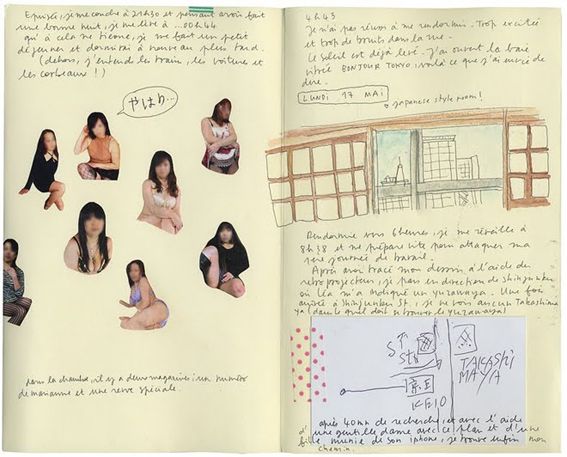 Epuisée, je me couche à 21h30 et pensant avoir fait
une bonne nuit, je me lève à ...00h44
qu'à cela ne tienne, je me fait un petit
déjeuner et dormirai à nouveau plus tard.
(dehors, j'entends les train, les voitures et
les corbeaux !)
やはり...
dans la chambre, il y a deux magazines : un numéro
de marianne et une revue spéciale.
4h43
Je n'ai pas réussi à me rendormir. Trop excitée
et trop de bruits dans la rue.
Le soleil est déjà levé. J'ai ouvert la baie
vitrée BONJOUR TOKYO, voilà ce que j'ai envie de
dire.
LUNDI 17 MAI
japanese style room !
Rendormie vers 6 heures, je me réveille à
8h38 et me prépare vite pour attaquer ma
1ère journée de travail.
Après avoir tracé mon dessin à l'aide du
retroprojecteur, je pars en direction de Shinjunku
où Léa m'a indiqué un yuzawaya. Une fois
arrivée à Shinjunku St, je ne vois aucun Takashima
ya (dans lequel doit se trouver le yuzawaya)
ST
Sta
TAKASHI
MAYA
京王
KEIO
après 40mn de recherche, et avec l'aide
d'une gentille dame avec ce plan et d'une
fille munie de son iphone, je trouve enfin mon
chemin.